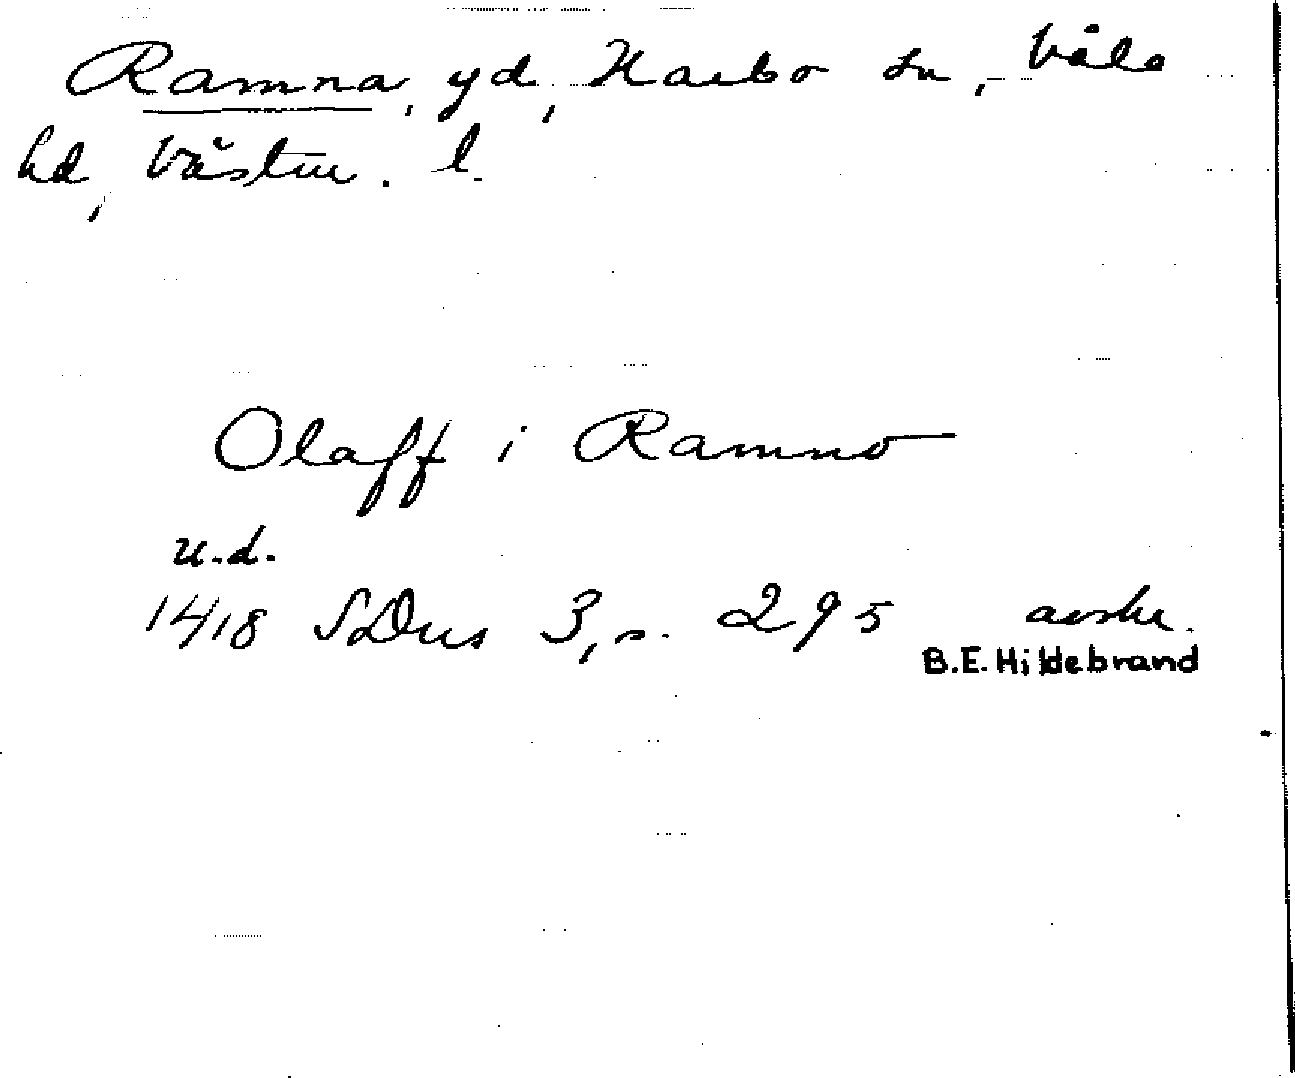 Ramna, gd, Harbo sn, Våla
hd, Västm. l.
Olaff i Ramno
u.d.
1418 SDns 3, s. 295 avskr.
B.E. Hildebrand